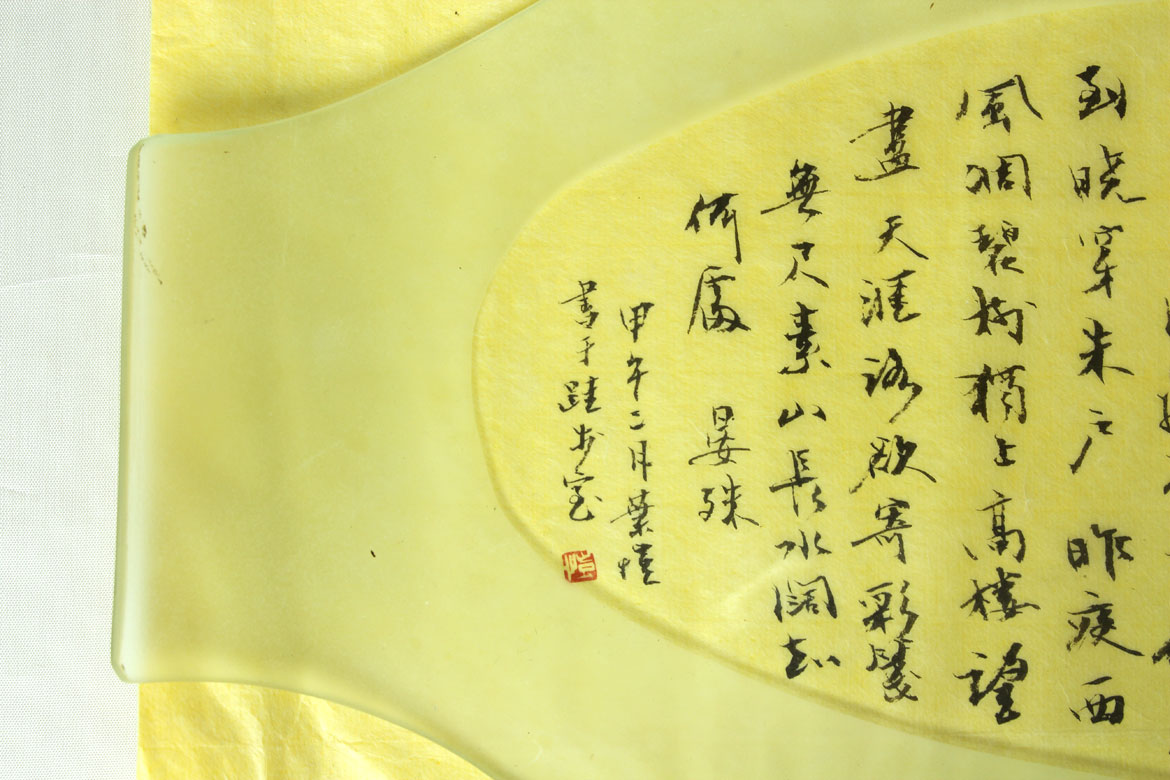 到晓穿朱户 昨夜西
風凋碧樹獨上高樓望
盡天涯路欲寄彩牋
無尺素山長水闊知
何處 晏殊
甲午二月葉愷
書于跬步室